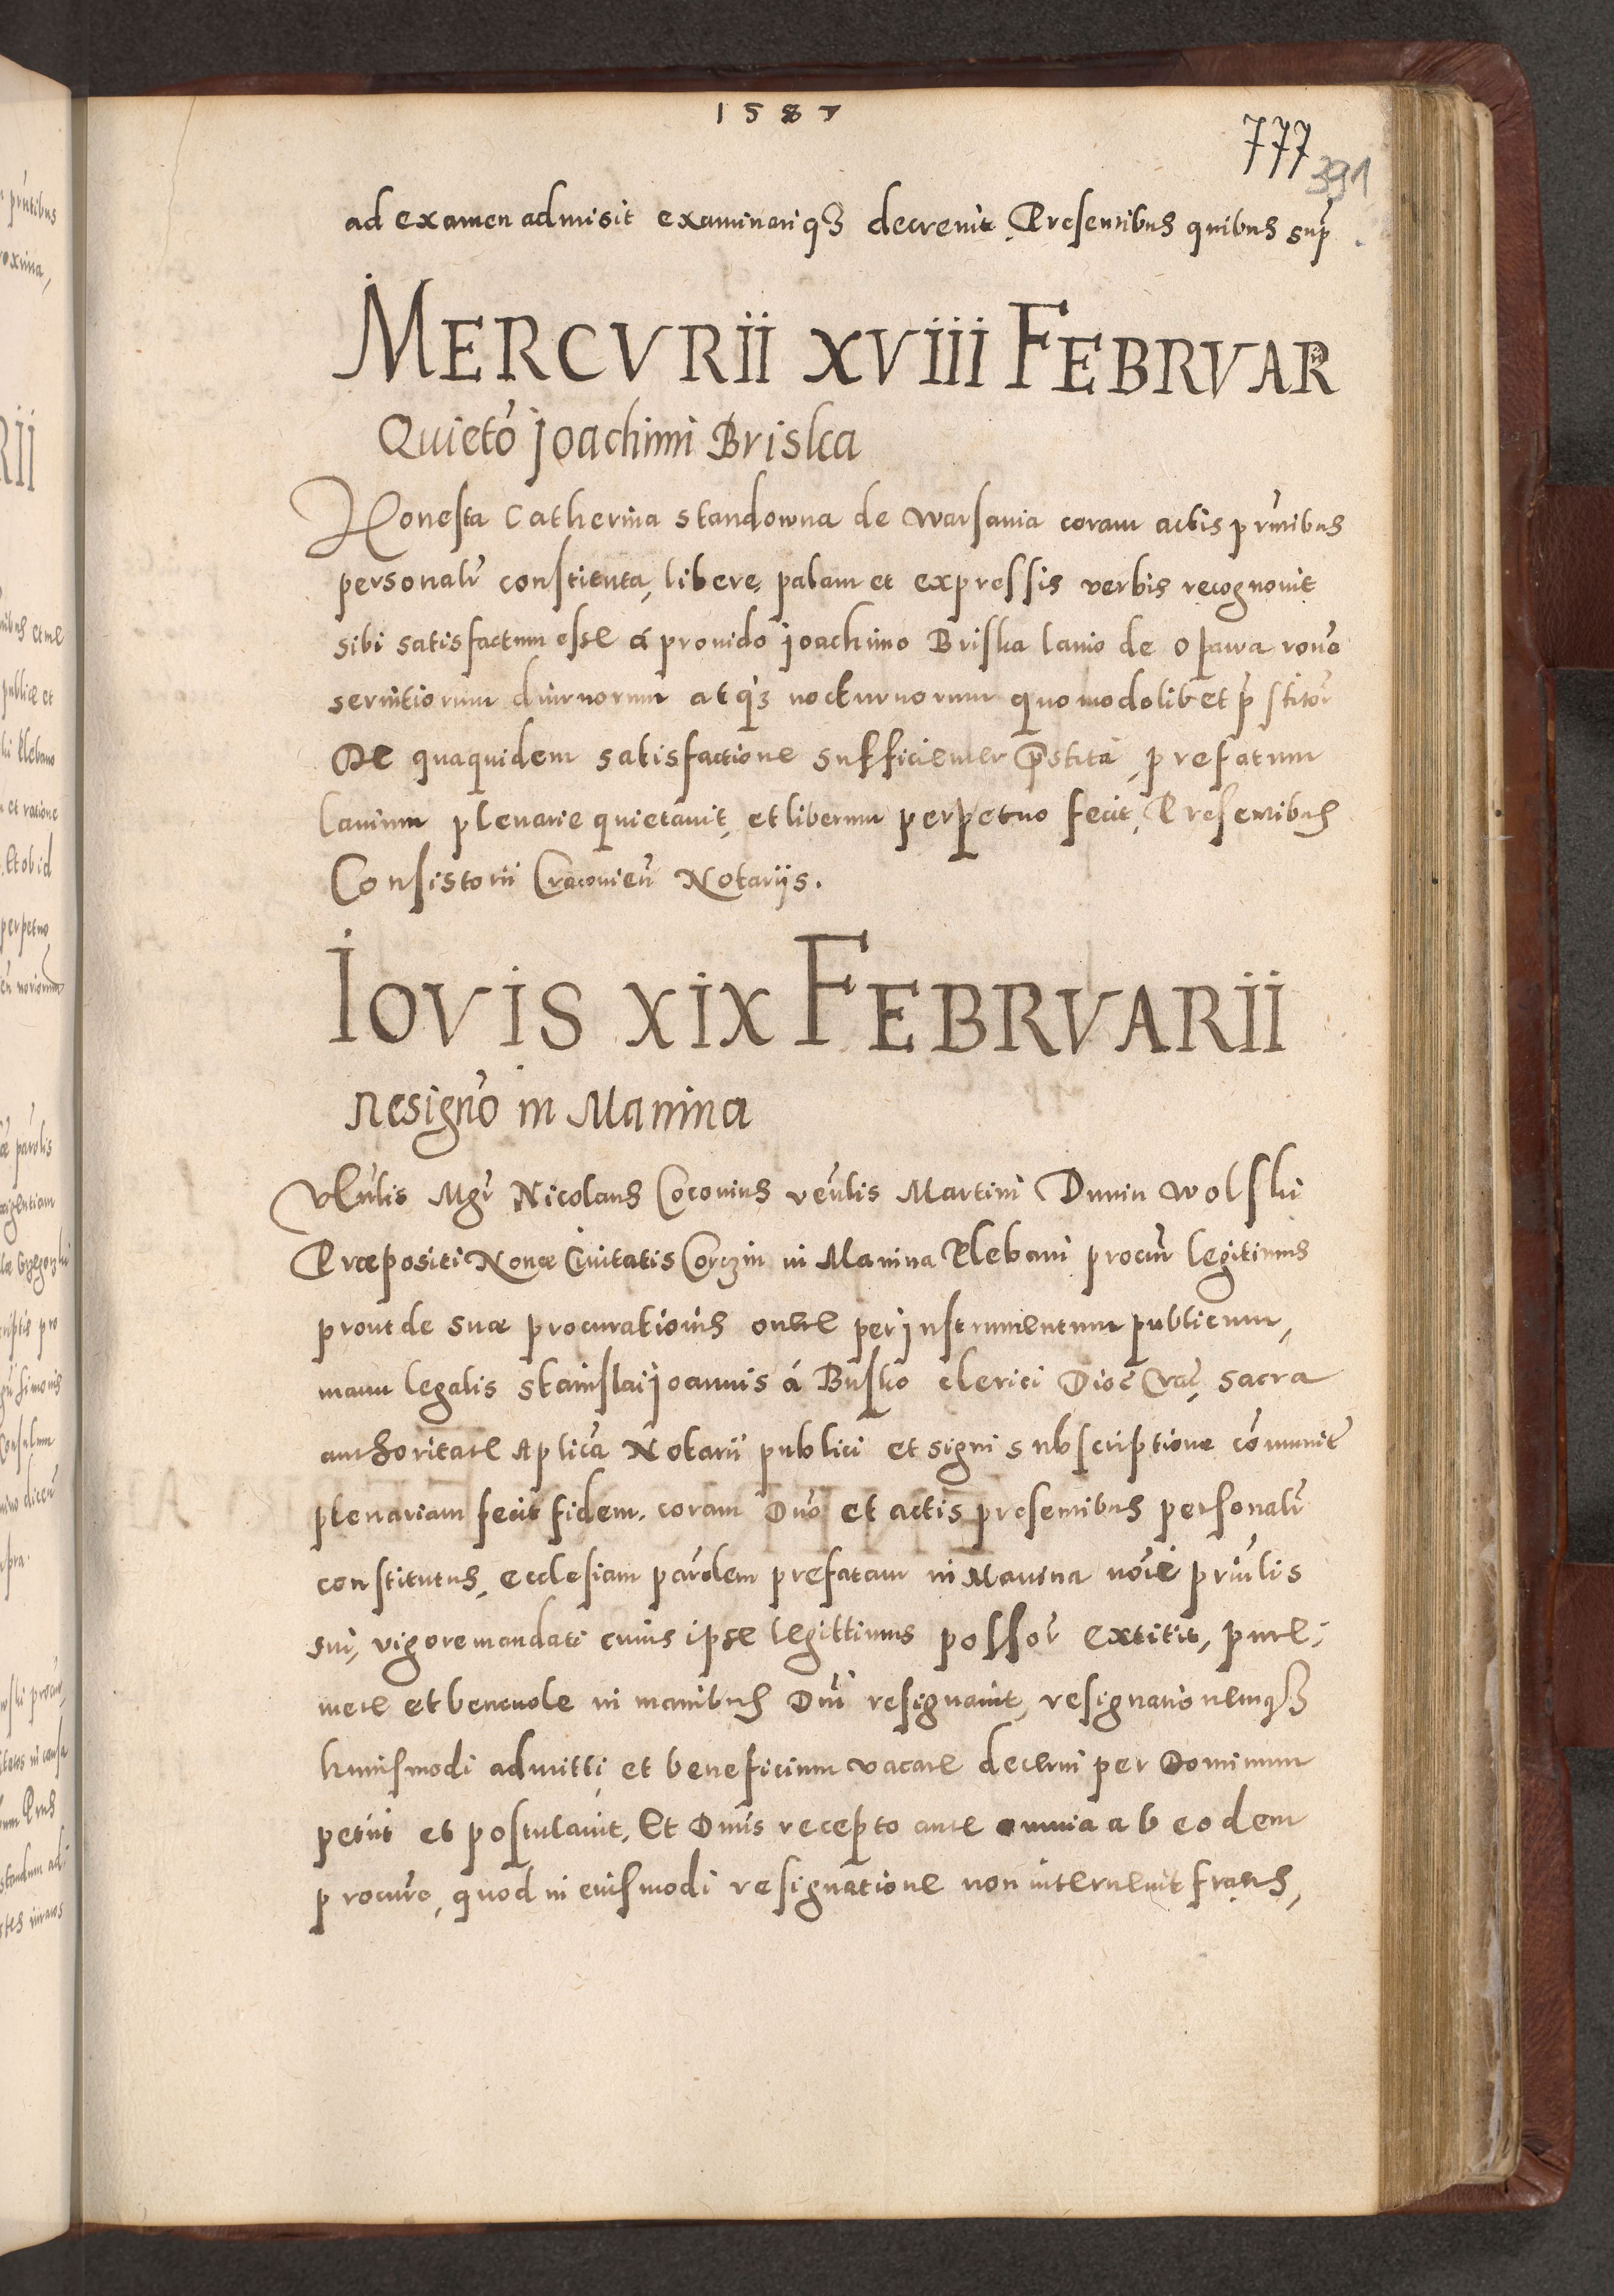 1587
777
391
ad examen admisit examinariq₃ decreuit, Presentibus quibus sup̃
MERCVRII XVIII FEBRVARII
Quietō Joachimi Briska
Honesta Catherina Standowna de Warsauia coram actis pr̃ntibus
personalr̃ constituta, libere, palam et expressis verbis recognouit
sibi satisfactum esse á prouido Joachimo Briska lanio de Opawa rõne
seruitiorum diurnorum atq₃ nocturnorum quomodolibet pr̃stitor̃
De quaquidem satisfactione sufficienter pr̃stita, prefatum
lanium plenarie quietauit, et liberum perpetuo fecit, Presentibus
Consistorii Cracouieñ Notariis.
IOVIS XIX FEBRVARII
Resignõ in Manina
Vñlis Mgr̃ Nicolaus Coconius veñlis Martini Dunin Wolski
Præpositi Nouæ Ciuitatis Corczin in Manina Plebani procur̃ legitimus
prout de suæ procurationis onere per Instrumentum publicum,
manu legalis Stanislai Joannis á Busko clerici Dioc̃ Crac̃, sacra
authoritate Aplica Notarii publici et signi subscriptione cõmunit̃
plenariam fecit fidem. coram Dño et actis presentibus personalr̃
constitutus, ecclesiam par̃olem prefatam in Manina nõie prin̄lis
sui, vigore mandati cuius ipse legittimus possor̃ extitit, pure,
mere et beneuole in manibus Dñi resignauit, resignationemq₃
huiusmodi admitti et beneficium vacare decerni per Dominum
petiit et postulauit. Et Dñus recepto ante omnia ab eodem
procur̃e, quod in eiusmodi resignatione non interuenit fraus,